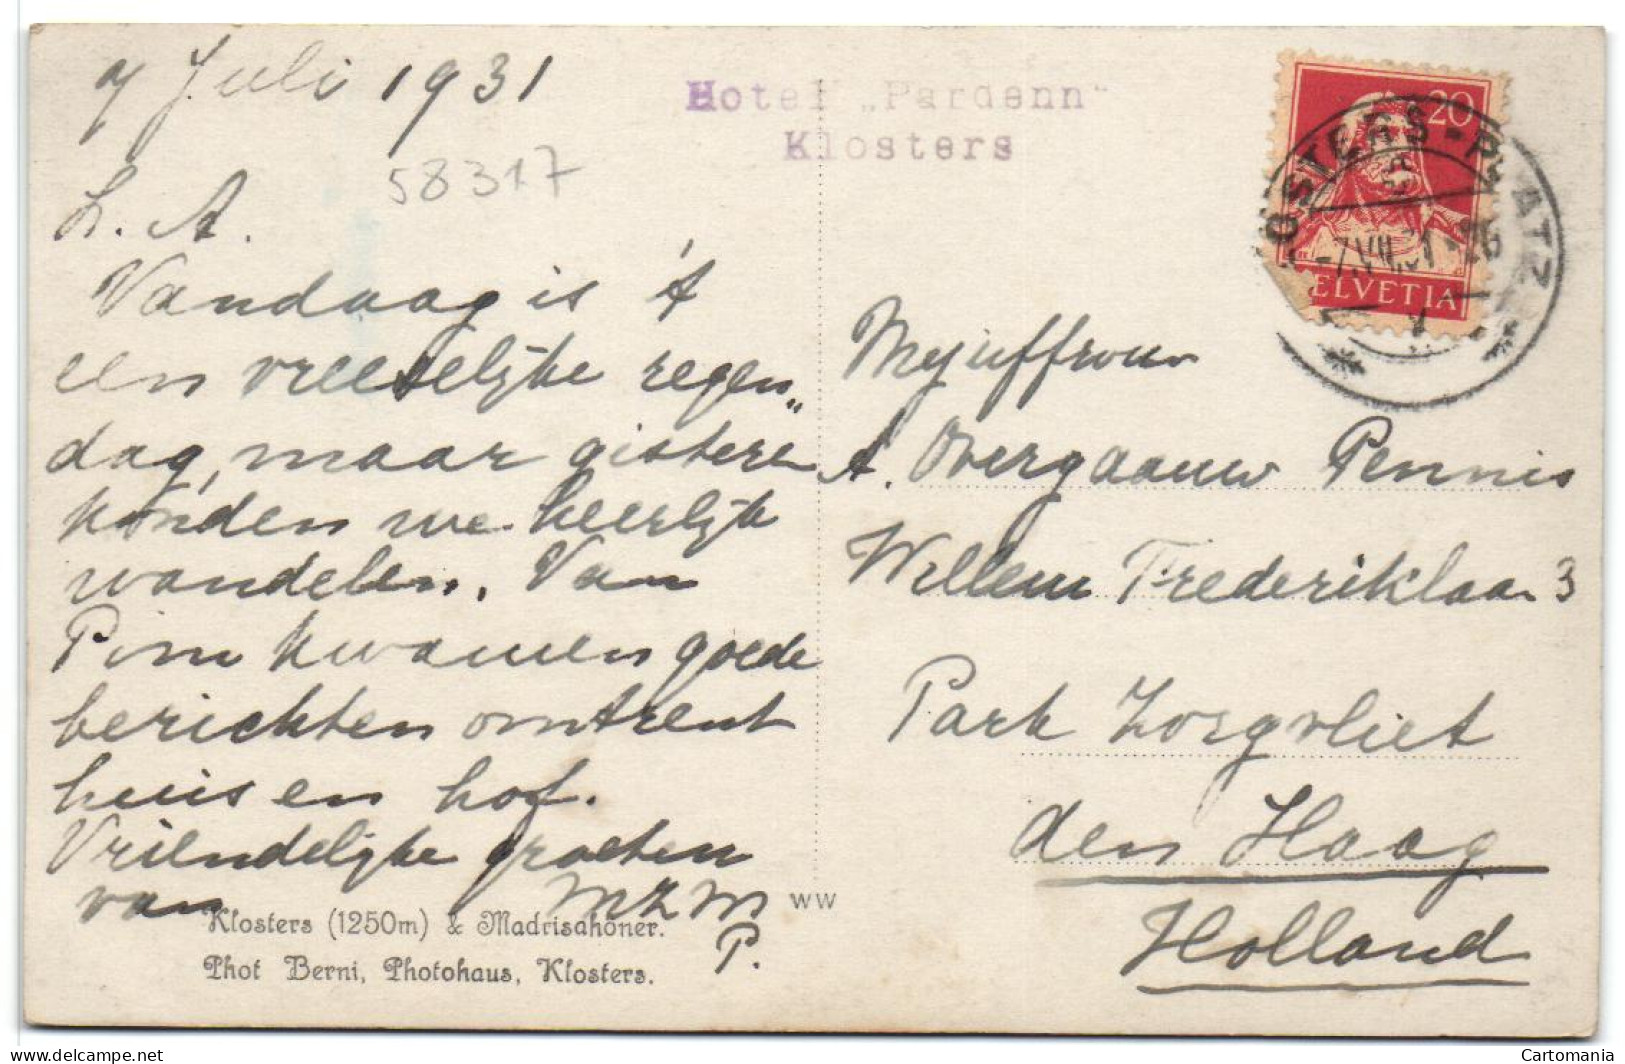 7 Juli 1931
58317
L. A.
Vandaag is 't
een vreeselijke regen„
dag, maar gisteren
konden we heerlijk
wandelen. Van
Pim kwamen goede
berichten omtrent
huis en hof.
Vriendelijke groeten
van M Z M
P.
Klosters (1250m) & Madrisahörner.
Phot Berni, Photohaus, Klosters.
WW
Hotel „Pardenn"
Klosters
20
HELVETIA
KLOSTERS-PLATZ
-7.VII.31
Mejuffrouw
A. Overgaauw Pennis
Willem Frederiklaan 3
Park Zorgvliet
den Haag
Holland
Cartomania